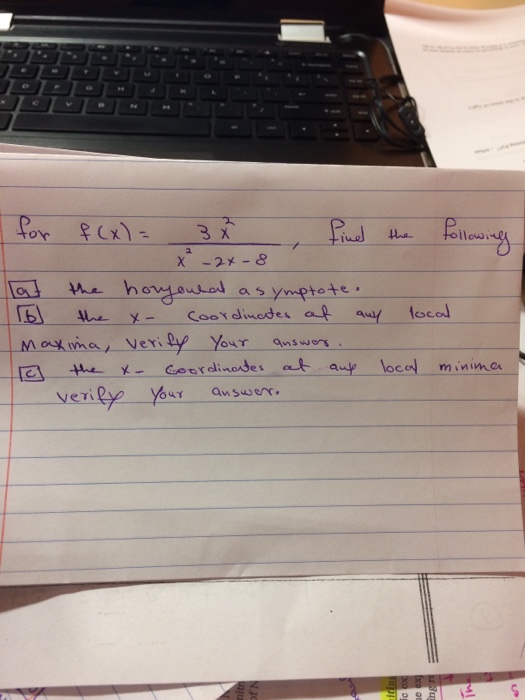 for f(x) = 3x² / x² - 2x - 8 , find the following
[a] the horyoural asymptote.
[b] the x- coordinates of any local
maxima, verify your answer.
[c] the x- coordinates at any local minima
verify your answer.